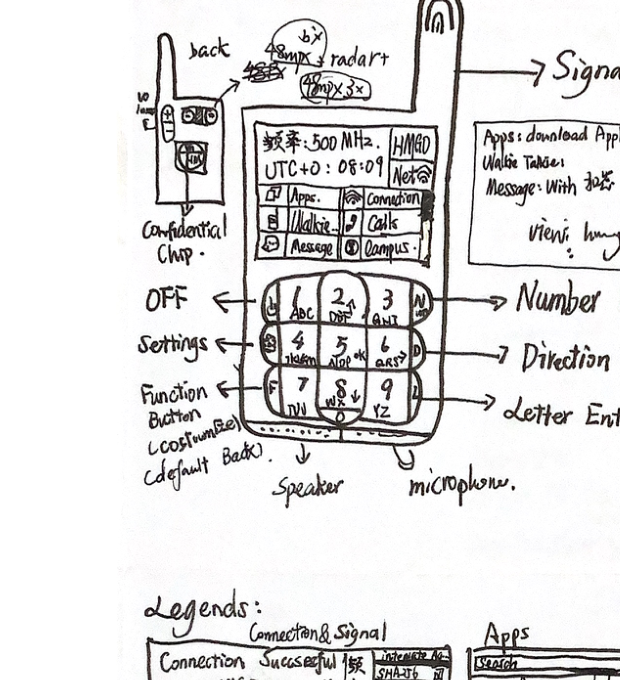 back
6x
48mpx
+ radar +
48mpx 3x
频率:500 MHz.
HMGD
UTC+0: 08:09
Net
Apps.
Connection
Walkie..
Calls
Message
Campus.
Confidential
Chip.
Signa
Apps: download Appl
Walkie Talkie:
Message: With 加密
View:
OFF
1 2 3
ABC DEF
Number
Settings
4 5 6
OK QRS
Direction
Function
Button
(costumize)
(default Back).
7 8 9
WX YZ
0
Letter Ent
Speaker
microphone.
Legends:
Connection & Signal
Apps
Connection Succsesful 频
Search
SHA256